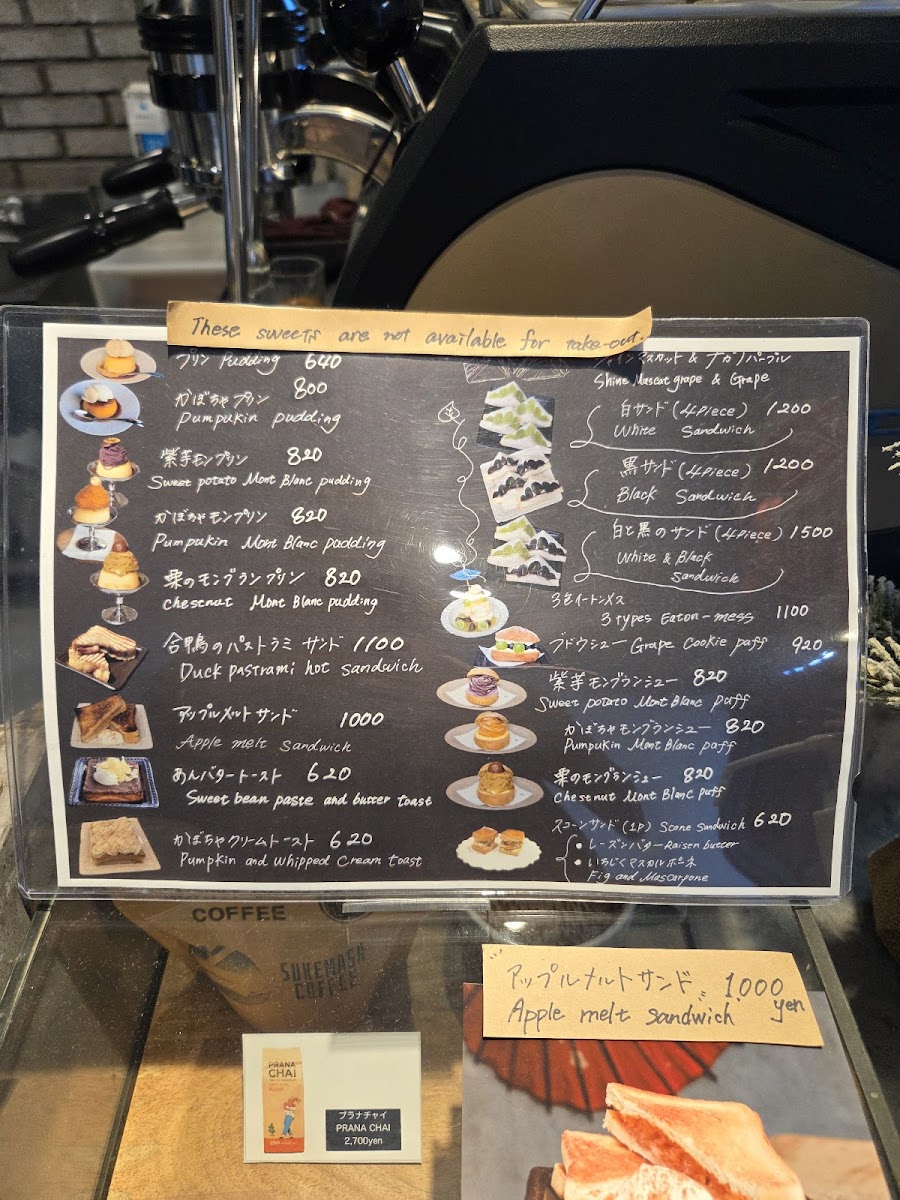 These sweets are not available for take-out.
プリン Pudding 640
かぼちゃプリン 800
Pumpukin pudding
紫芋モンプリン 820
Sweet potato Mont Blanc pudding
かぼちゃモンプリン 820
Pumpukin Mont Blanc pudding
栗のモンブランプリン 820
chestnut Mont Blanc pudding
合鴨のパストラミ サンド 1100
Duck pastrami hot sandwich
アップルメルトサンド 1000
Apple melt sandwich
あんバタートースト 620
Sweet bean paste and butter toast
かぼちゃクリームトースト 620
Pumpkin and whipped Cream toast
シャインマスカット & ナガノパープル
Shine Muscat grape & Grape
白サンド (4piece) 1200
White Sandwich
黒サンド (4piece) 1200
Black Sandwich
白と黒のサンド (4piece) 1500
White & Black
Sandwich
3色イートンメス
3 types Eaton-mess 1100
ブドウシュー Grape Cookie paff 920
紫芋モンブランシュー 820
Sweet potato Mont Blanc puff
かぼちゃモンブランシュー 820
Pumpukin Mont Blanc paff
栗のモンブランシュー 820
chestnut Mont Blanc puff
スコーンサンド (1P) Scone Sandwich 620
• レーズンバター Raisen butter
• いちじくマスカルポーネ
Fig and Mascarpone
COFFEE
SUKEMASA
COFFEE
アップルメルトサンド 1,000
yen
Apple melt sandwich
PRANA
CHAI
プラナチャイ
PRANA CHAI
2,700yen